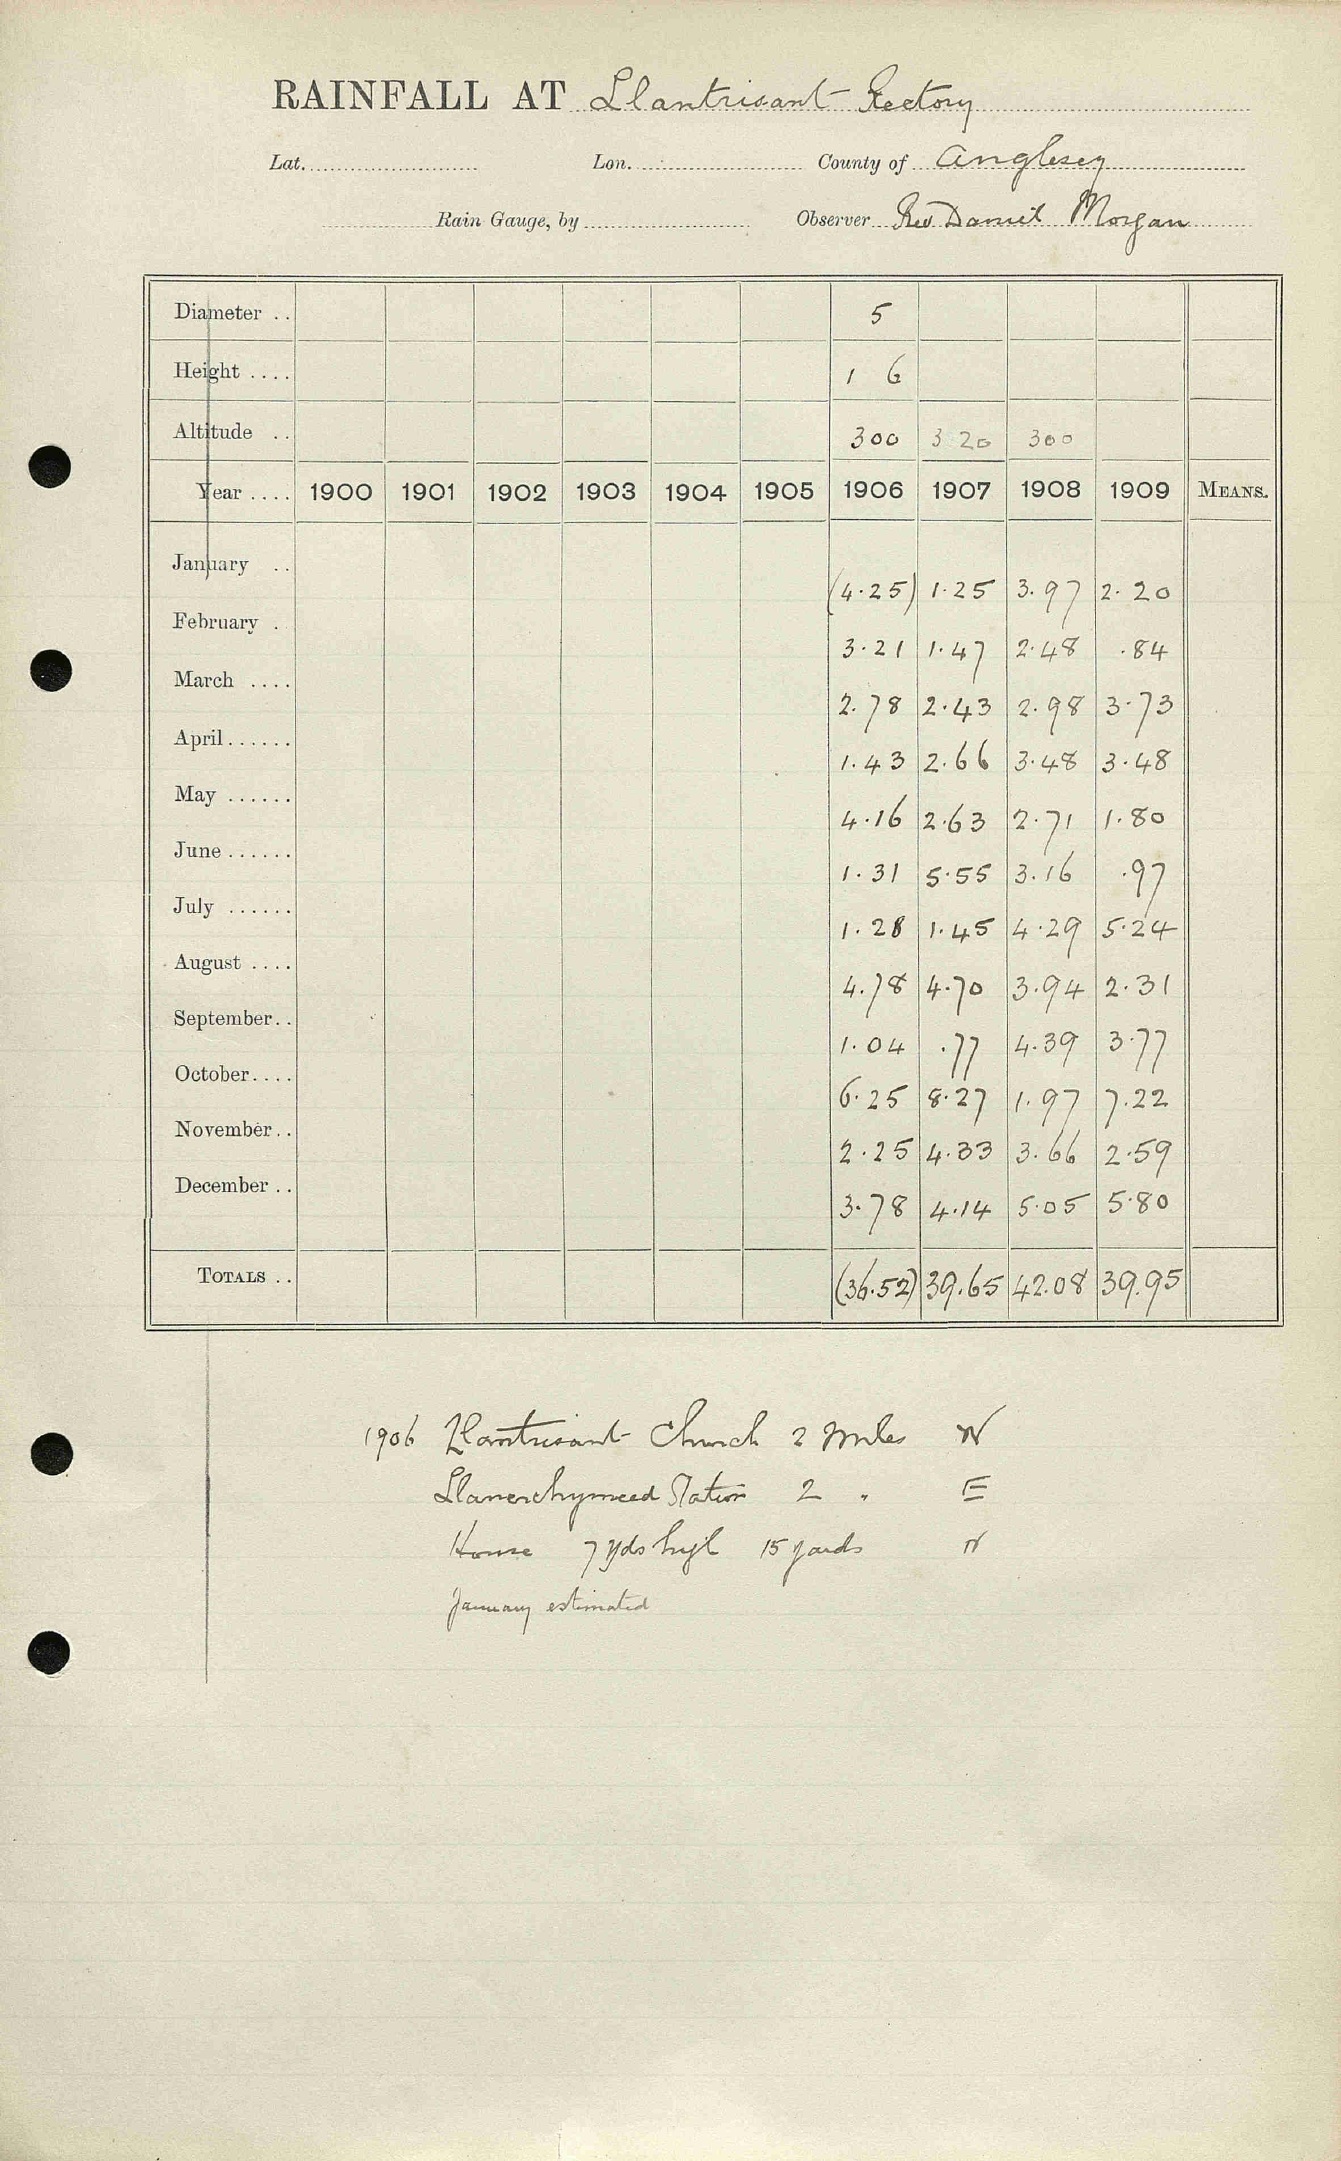 RAINFALL AT Llantrisant Rectory
Lat. Lon. County of Anglesey
Rain Gauge, by Observer Rev Daniel Morgan
Diameter .. 5
Height .... 1 6
Altitude .. 300 320 300
Year .... 1900 1901 1902 1903 1904 1905 1906 1907 1908 1909 MEANS.
January .. (4.25) 1.25 3.97 2.20
February . 3.21 1.47 2.48 .84
March .... 2.78 2.43 2.98 3.73
April...... 1.43 2.66 3.48 3.48
May ...... 4.16 2.63 2.71 1.80
June...... 1.31 5.55 3.16 .97
July ...... 1.28 1.45 4.29 5.24
August .... 4.78 4.70 3.94 2.31
September.. 1.04 .77 4.39 3.77
October.... 6.25 8.27 1.97 7.22
November.. 2.25 4.33 3.66 2.59
December .. 3.78 4.14 5.05 5.80
TOTALS .. (36.52) 39.65 42.08 39.95
1906 Llantrisant Church 2 miles W
Llanerchymeed Station 2 " E
House 7 yds high 15 yards N
January estimated